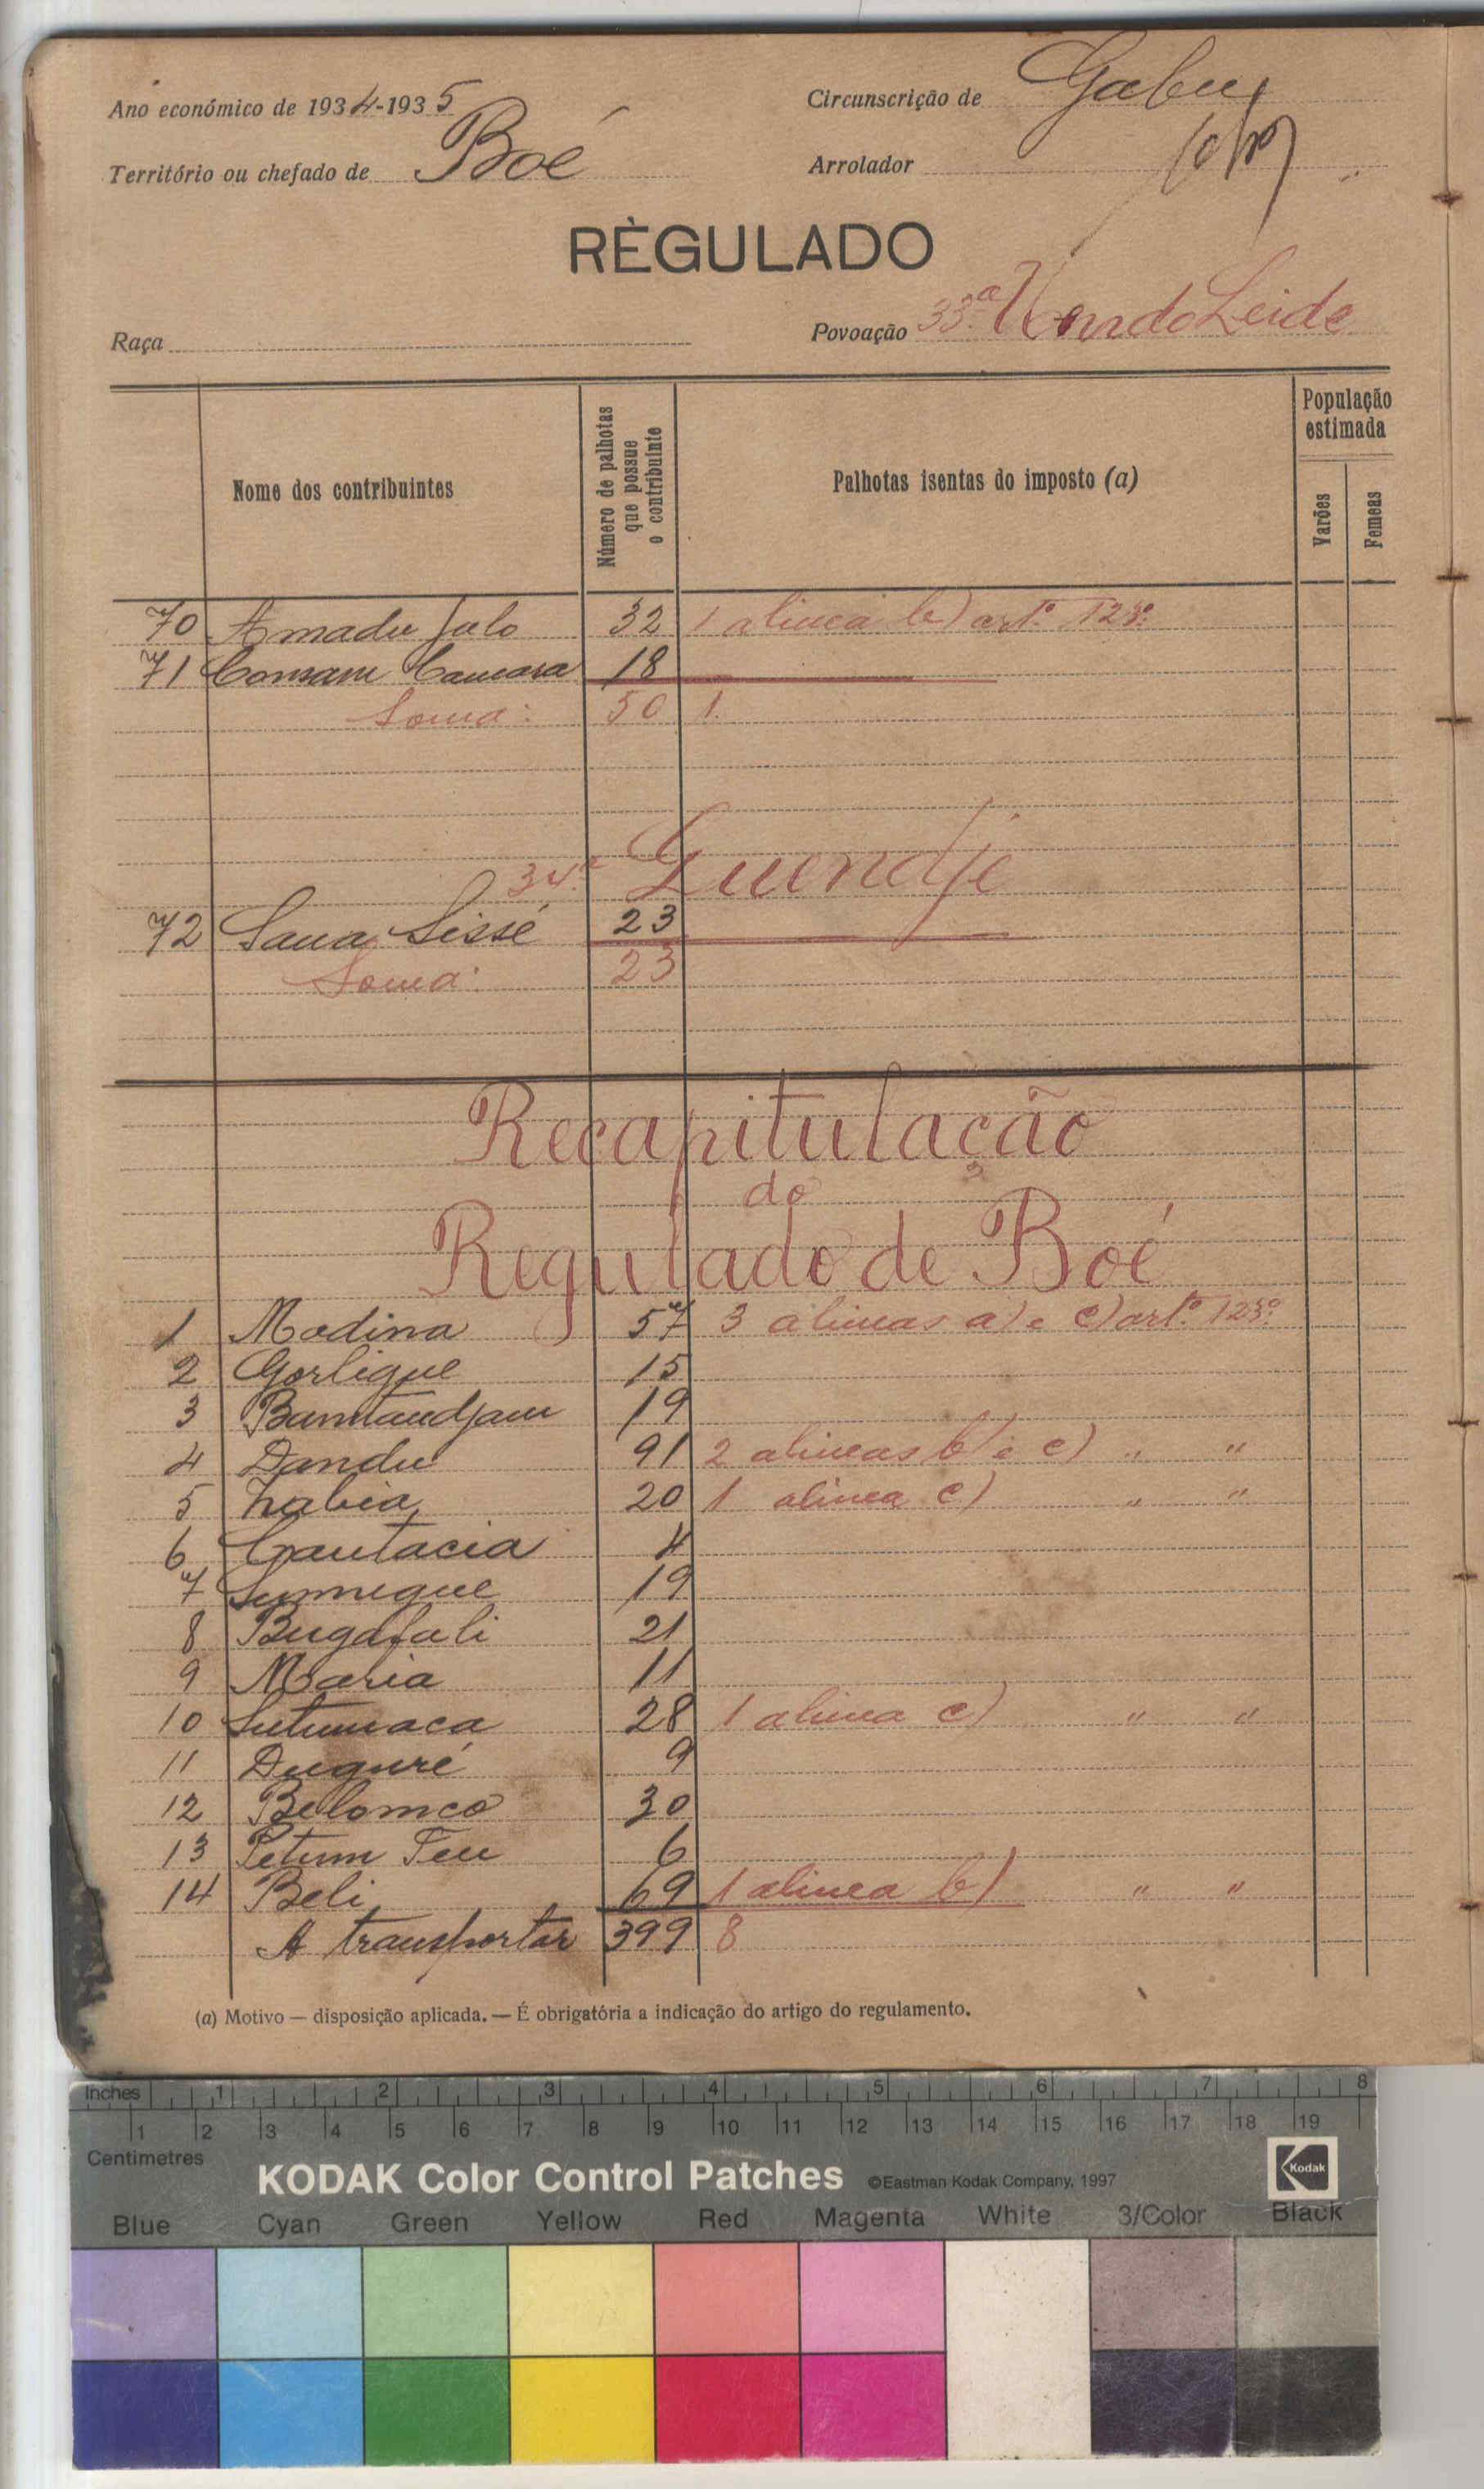 Ano económico de 1934-1935
Circunscrição de Gabu
Território ou chefado de Boé
Arrolador
RÈGULADO
Raça
Povoação 33.ª Vendo Leide
Nome dos contribuintes
Número de palhotas que possue o contribuinte
Palhotas isentas do imposto (a)
População estimada
Varões
Femeas
70 Amadu Jalo 32 1 alinea b) art.º 123º
71 Consam Camara 18
Soma: 50 1.
34.ª Guendje
72 Sana Sissé 23
Soma: 23
Recapitulação
do
Regulado de Boé
1 Madina 57 3 alineas a) e c) art.º 123º
2 Gorligue 15
3 Bamtandjam 19
4 Dandu 91 2 alineas b) e c) " "
5 Labia 20 1 alinea c) " "
6 Cantacia 4
7 Sumegue 19
8 Bugafali 21
9 Maria 11
10 Sutumaca 28 1 alinea c) " "
11 Duguré 9
12 Belomco 30
13 Petum Teu 6
14 Beli 69 1 alinea b) " "
A transportar 399 8
(a) Motivo — disposição aplicada. — É obrigatória a indicação do artigo do regulamento.
Inches 1 2 3 4 5 6 7 8
1 2 3 4 5 6 7 8 9 10 11 12 13 14 15 16 17 18 19
Centimetres
KODAK Color Control Patches ©Eastman Kodak Company, 1997 Kodak
Blue Cyan Green Yellow Red Magenta White 3/Color Black